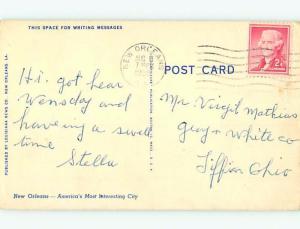 THIS SPACE FOR WRITING MESSAGES
NEW ORLEANS
POST CARD
2¢
PUBLISHED BY LOUISIANA NEWS CO. NEW ORLEANS, LA.
Hi. got hear
Wensday and
having a swell
time
Stella
Mr. Virgil Mathias
Gray & White co
Tiffin Ohio
New Orleans — America's Most Interesting City